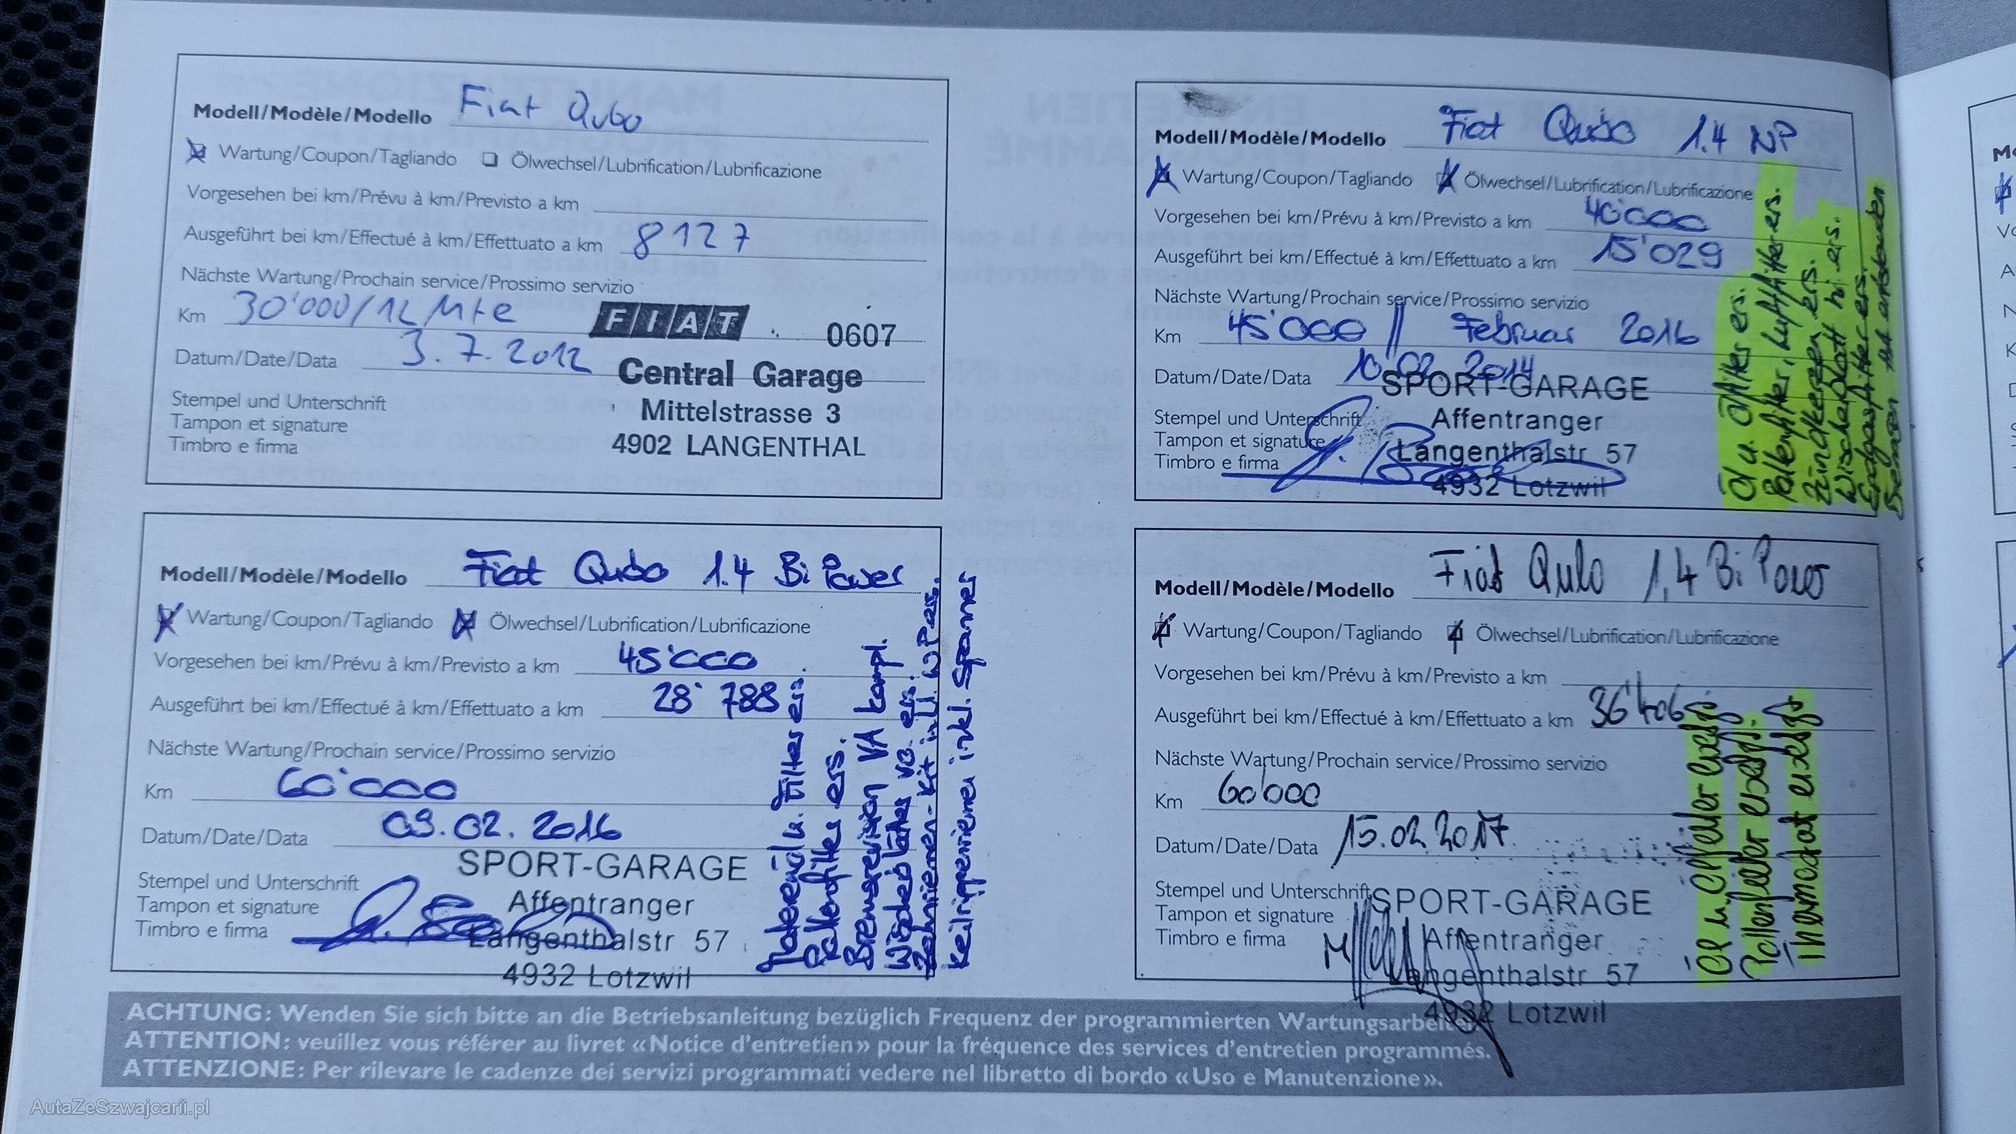 Modell/Modèle/Modello Fiat Qubo
Wartung/Coupon/Tagliando Ölwechsel/Lubrification/Lubrificazione
Vorgesehen bei km/Prévu à km/Previsto a km
Ausgeführt bei km/Effectué à km/Effettuato a km 8127
Nächste Wartung/Prochain service/Prossimo servizio
Km 30'000/12 Mte
FIAT 0607
Datum/Date/Data 3.7.2012
Central Garage
Mittelstrasse 3
4902 LANGENTHAL
Stempel und Unterschrift
Tampon et signature
Timbro e firma
Modell/Modèle/Modello Fiat Qubo 1.4 NP
Wartung/Coupon/Tagliando Ölwechsel/Lubrification/Lubrificazione
Vorgesehen bei km/Prévu à km/Previsto a km 40'000
Ausgeführt bei km/Effectué à km/Effettuato a km 15'029
Nächste Wartung/Prochain service/Prossimo servizio
Km 45'000 // Februar 2016
Datum/Date/Data 10.02.2014
SPORT-GARAGE
Affentranger
Langenthalstr 57
4932 Lotzwil
Stempel und Unterschrift
Tampon et signature
Timbro e firma
Öl u. Ölfilter ers.
Pollenfilter, Luftfilter ers.
Zündkerzen ers.
Wischerblatt hi ers.
Erdgasfilter ers.
Modell/Modèle/Modello Fiat Qubo 1.4 Bi Power
Wartung/Coupon/Tagliando Ölwechsel/Lubrification/Lubrificazione
Vorgesehen bei km/Prévu à km/Previsto a km 45'000
Ausgeführt bei km/Effectué à km/Effettuato a km 28'788
Nächste Wartung/Prochain service/Prossimo servizio
Km 60'000
Datum/Date/Data 09.02.2016
SPORT-GARAGE
Affentranger
Langenthalstr 57
4932 Lotzwil
Stempel und Unterschrift
Tampon et signature
Timbro e firma
Motorenöl u. Filter ers.
Pollenfilter ers.
Bremsrevision VA kompl.
Wischerblätter vo. ers.
Zahnriemen-Kit inkl. WP ers.
Keilrippenriemen inkl. Spanner
Modell/Modèle/Modello Fiat Qubo 1,4 Bi Power
Wartung/Coupon/Tagliando Ölwechsel/Lubrification/Lubrificazione
Vorgesehen bei km/Prévu à km/Previsto a km
Ausgeführt bei km/Effectué à km/Effettuato a km 36'406
Nächste Wartung/Prochain service/Prossimo servizio
Km 60'000
Datum/Date/Data 15.02.2017
SPORT-GARAGE
Affentranger
Langenthalstr 57
4932 Lotzwil
Stempel und Unterschrift
Tampon et signature
Timbro e firma
Öl u Ölfilter
Pollenfilter
Thermostat
ACHTUNG: Wenden Sie sich bitte an die Betriebsanleitung bezüglich Frequenz der programmierten
ATTENTION: veuillez vous référer au livret «Notice d'entretien» pour la fréquence des services d'entretien programmés.
ATTENZIONE: Per rilevare le cadenze dei servizi programmati vedere nel libretto di bordo «Uso e Manutenzione».
AutaZeSzwajcarii.pl